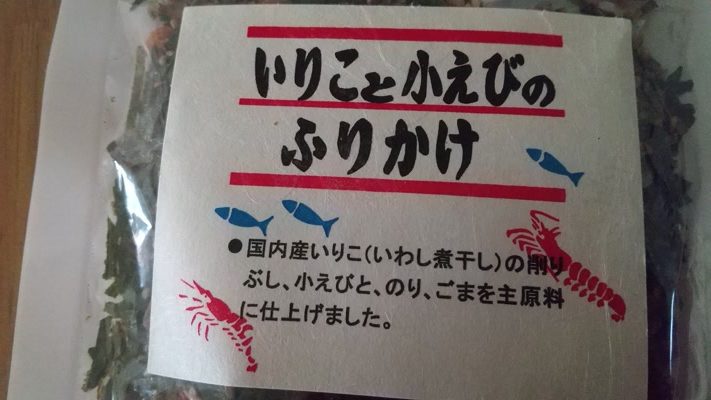 いりこと小えびの
ふりかけ
●国内産いりこ(いわし煮干し)の削り
ぶし、小えびと、のり、ごまを主原料
に仕上げました。